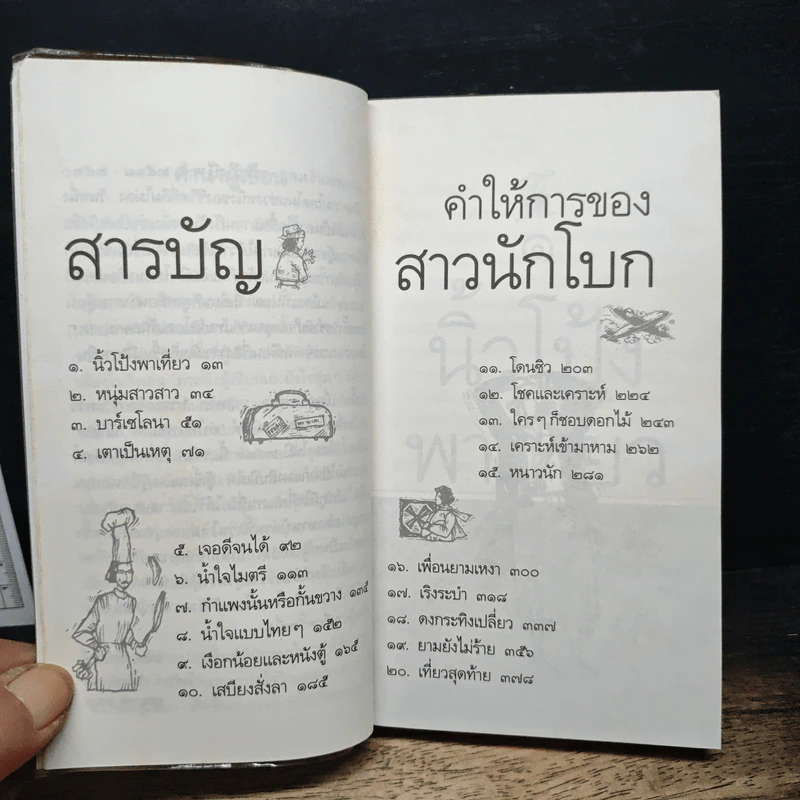 สารบัญ
๑. นิ้วโป้งพาเที่ยว ๑๓
๒. หนุ่มสาวสาว ๓๔
๓. บาร์เซโลนา ๕๑
๔. เตาเป็นเหตุ ๗๑
๕. เจอดีจนได้ ๙๒
๖. น้ำใจไมตรี ๑๑๓
๗. กำแพงนั้นหรือกั้นขวาง ๑๓๕
๘. น้ำใจแบบไทยๆ ๑๕๒
๙. เงือกน้อยและหนังตู้ ๑๖๕
๑๐. เสบียงสั่งลา ๑๘๕
คำให้การของ
สาวนักโบก
๑๑. โดนซิว ๒๐๓
๑๒. โชคและเคราะห์ ๒๒๔
๑๓. ใครๆ ก็ชอบดอกไม้ ๒๔๓
๑๔. เคราะห์เข้ามาหาม ๒๖๒
๑๕. หนาวนัก ๒๘๑
๑๖. เพื่อนยามเหงา ๓๐๐
๑๗. เริงระบำ ๓๑๘
๑๘. ดงกระทิงเปลี่ยว ๓๓๗
๑๙. ยามยังไม่ร้าย ๓๕๖
๒๐. เที่ยวสุดท้าย ๓๗๘